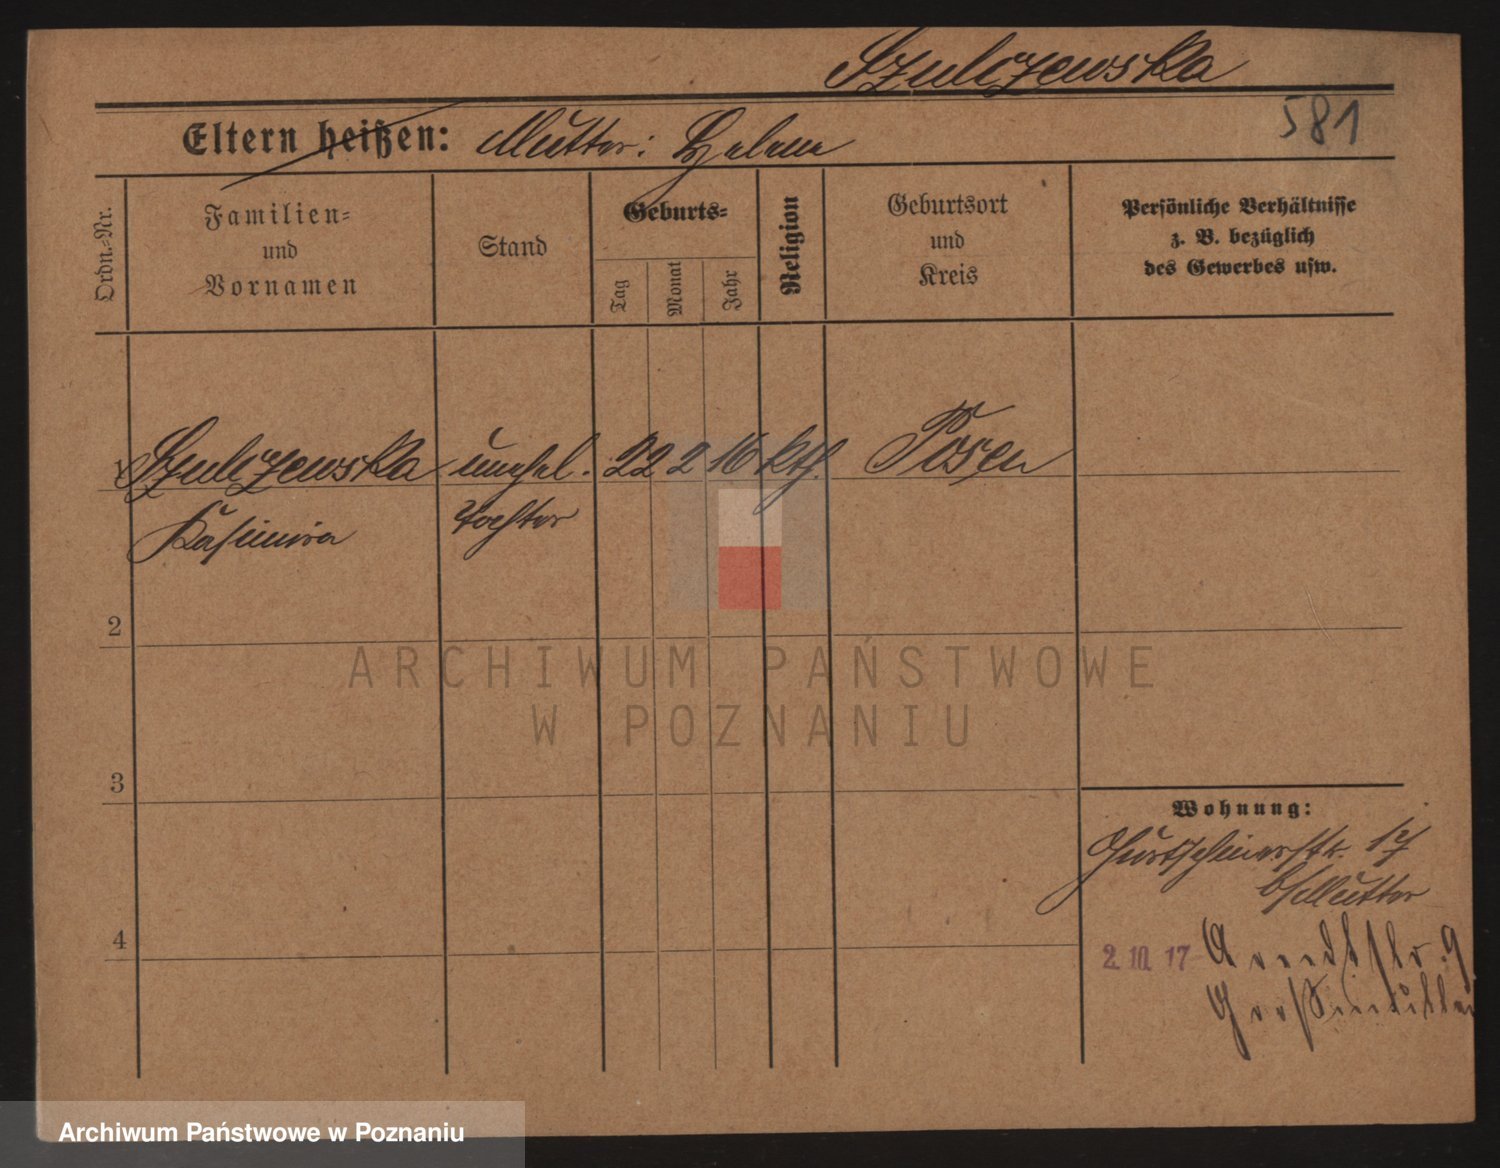 Szulczewska
581
Eltern heißen: Mutter: Helene
Ordn.-Nr.
Familien-
und
Vornamen
Stand
Geburts-
Tag
Monat
Jahr
Religion
Geburtsort
und
Kreis
Persönliche Verhältnisse
z. B. bezüglich
des Gewerbes usw.
1 Szulczewska unehel. 22 2 16 kth. Posen
Kasimira Tochter
2
ARCHIWUM PAŃSTWOWE
W POZNANIU
3
Wohnung:
Gurtschinerstr. 17
b/Mutter
4
2. 10. 17 Arndtstr. 9
Großmutter
Archiwum Państwowe w Poznaniu